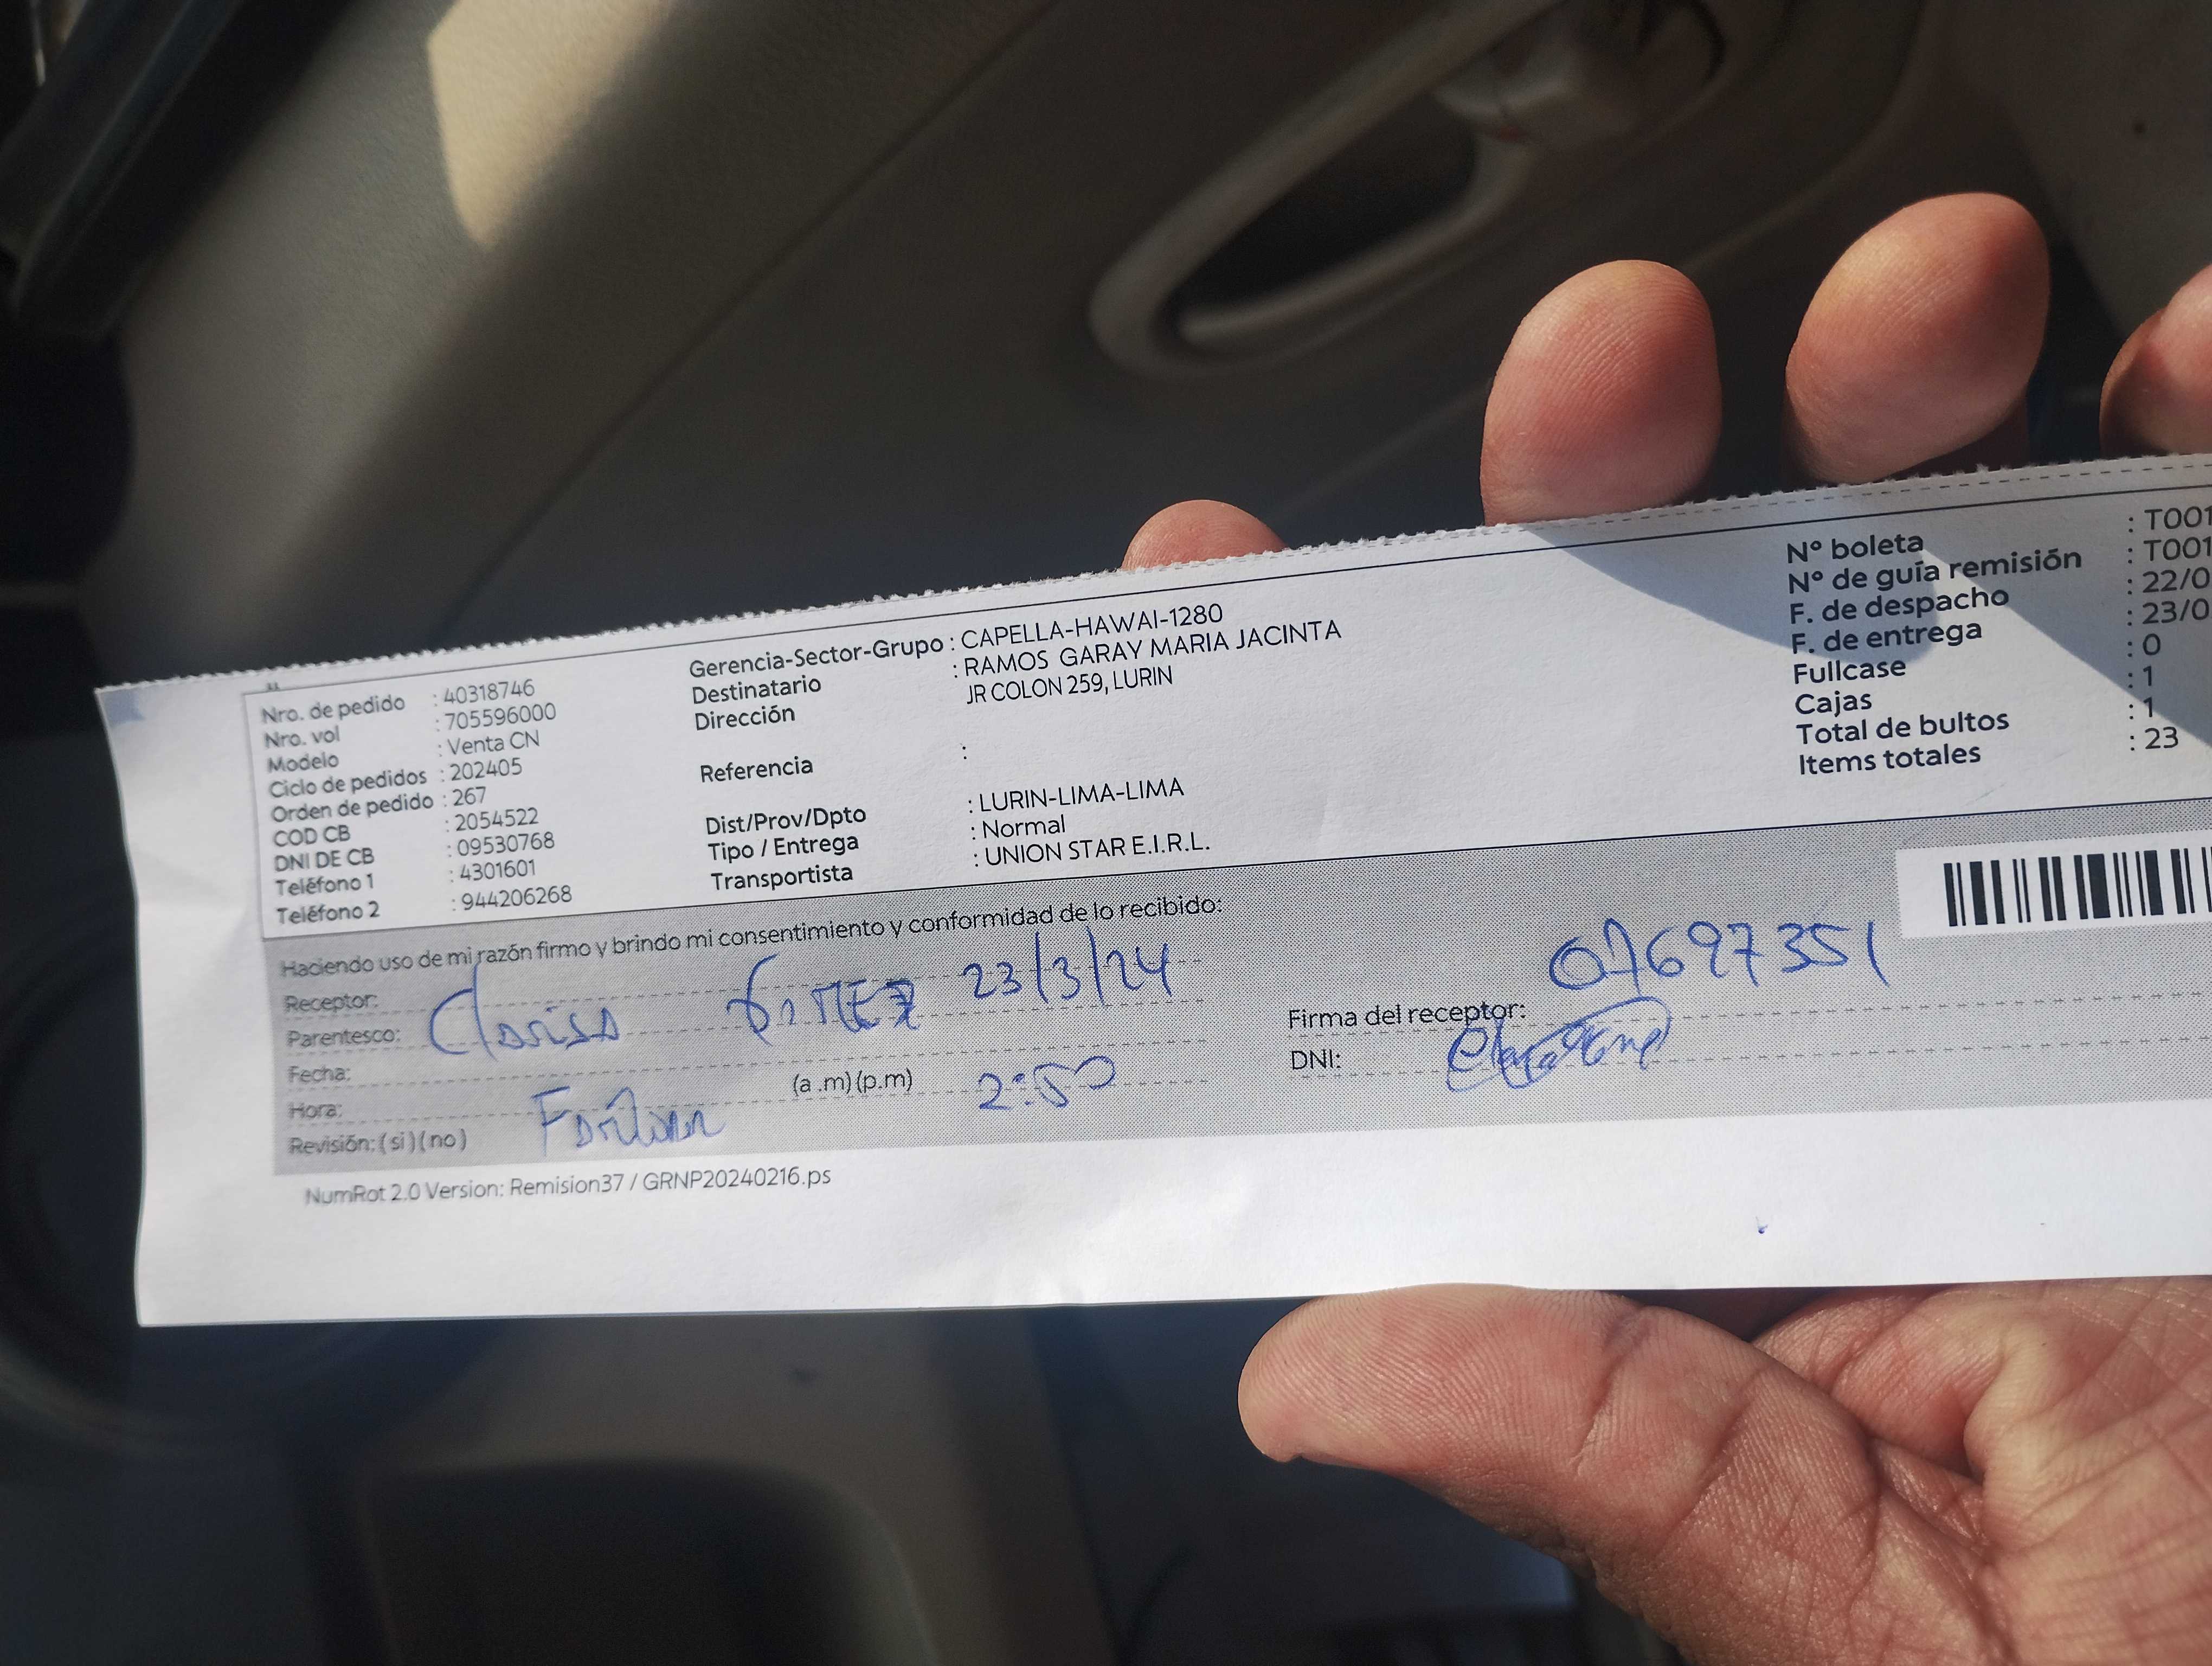 Nro. de pedido : 40318746
Nro. vol : 705596000
Modelo : Venta CN
Ciclo de pedidos : 202405
Orden de pedido : 267
COD CB : 2054522
DNI DE CB : 09530768
Teléfono 1 : 4301601
Teléfono 2 : 944206268
Gerencia-Sector-Grupo : CAPELLA-HAWAI-1280
Destinatario : RAMOS GARAY MARIA JACINTA
Dirección JR COLON 259, LURIN
Referencia :
Dist/Prov/Dpto : LURIN-LIMA-LIMA
Tipo / Entrega : Normal
Transportista : UNION STAR E.I.R.L.
Nº boleta : T001
Nº de guía remisión : T001
F. de despacho : 22/0
F. de entrega : 23/0
Fullcase : 0
Cajas : 1
Total de bultos : 1
Items totales : 23
Haciendo uso de mi razón firmo y brindo mi consentimiento y conformidad de lo recibido:
Receptor: 23/3/24
Parentesco: Clarisa
Fecha:
Hora: (a .m) (p.m) 2:50
Revisión: (si) (no)
07697351
Firma del receptor:
DNI:
NumRot 2.0 Version: Remision37 / GRNP20240216.ps